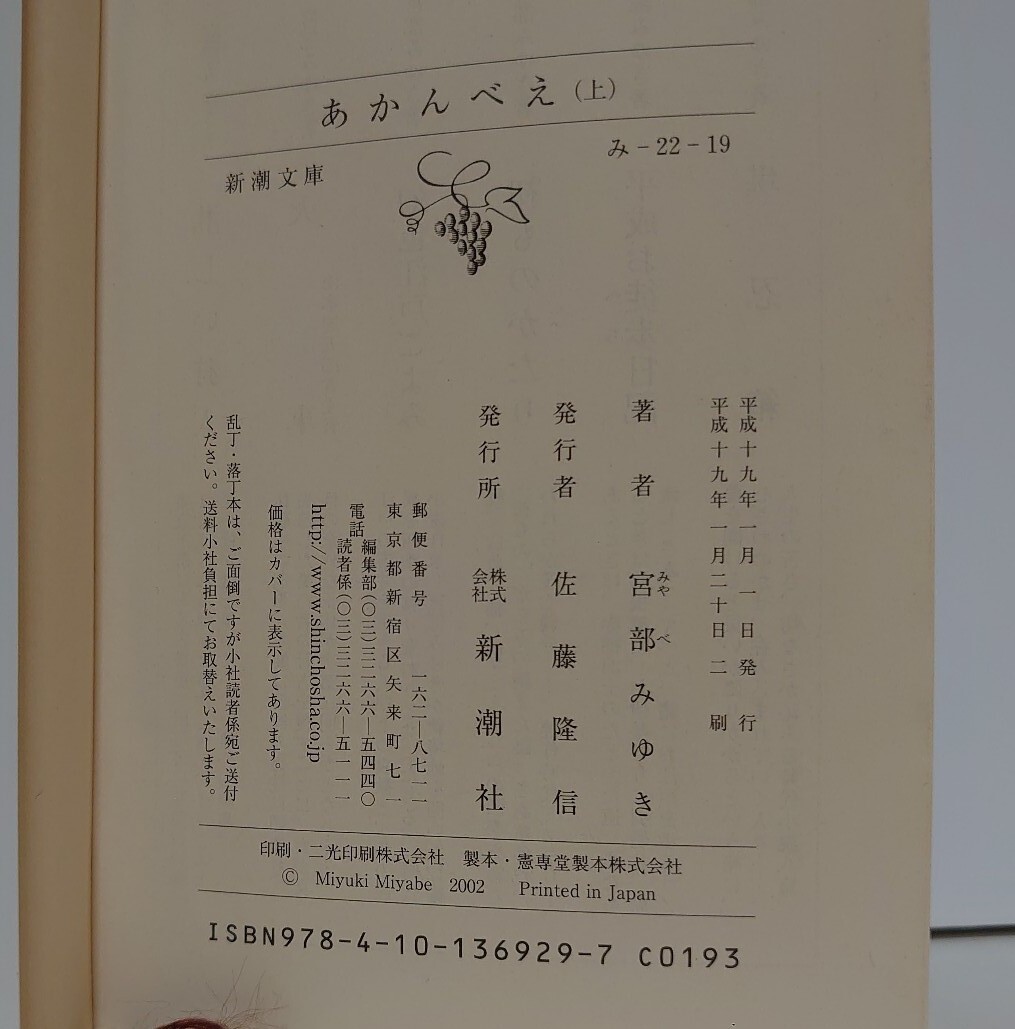 あかんべえ（上）
新潮文庫
み-22-19
平成十九年一月一日発行
平成十九年一月二十日二刷
著者 宮部みゆき
みや べ
発行者 佐藤隆信
発行所 株式会社 新潮社
郵便番号 一六二―八七一一
東京都新宿区矢来町七一
電話 編集部(〇三)三二六六―五四四〇
読者係(〇三)三二六六―五一一一
http://www.shinchosha.co.jp
価格はカバーに表示してあります。
乱丁・落丁本は、ご面倒ですが小社読者係宛ご送付
ください。送料小社負担にてお取替えいたします。
印刷・二光印刷株式会社 製本・憲専堂製本株式会社
© Miyuki Miyabe 2002 Printed in Japan
ISBN978-4-10-136929-7 C0193